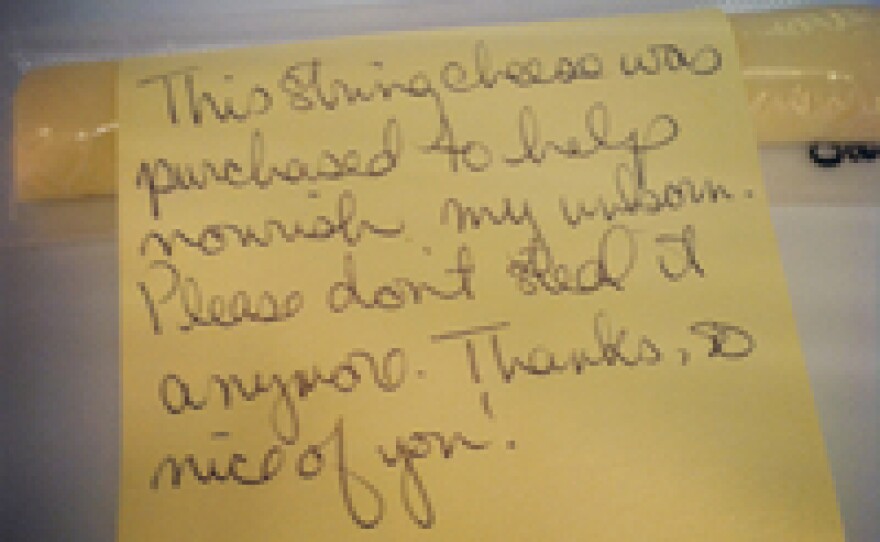 This string cheese was
purchased to help
nourish my unborn.
Please don't steal it
anymore. Thanks, so
nice of you!